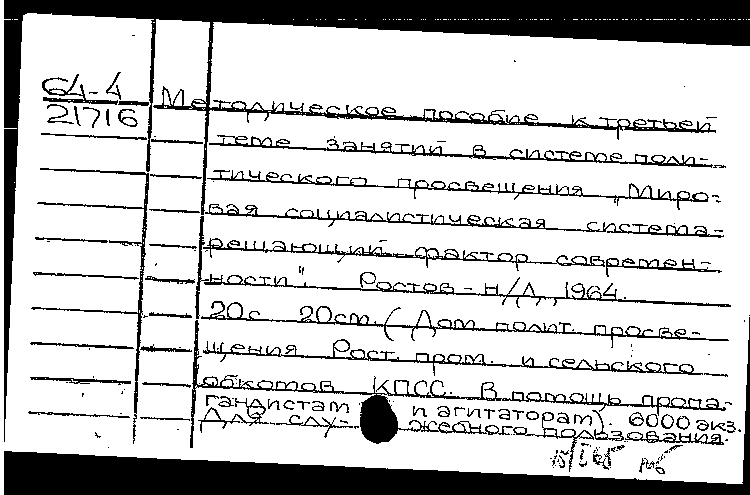 64-4
21716
Методическое пособие к третьей
теме занятий в системе поли-
тического просвещения „Миро-
вая социалистическая система-
решающий фактор современ-
ности". Ростов-н/Д, 1964.
20с 20см. (Дом полит. просве-
щения Рост. пром. и сельского
обкомов КПСС. В помощь пропа-
гандистам и агитаторам). 6000 экз.
Для слу- жебного пользования.
15/I 65